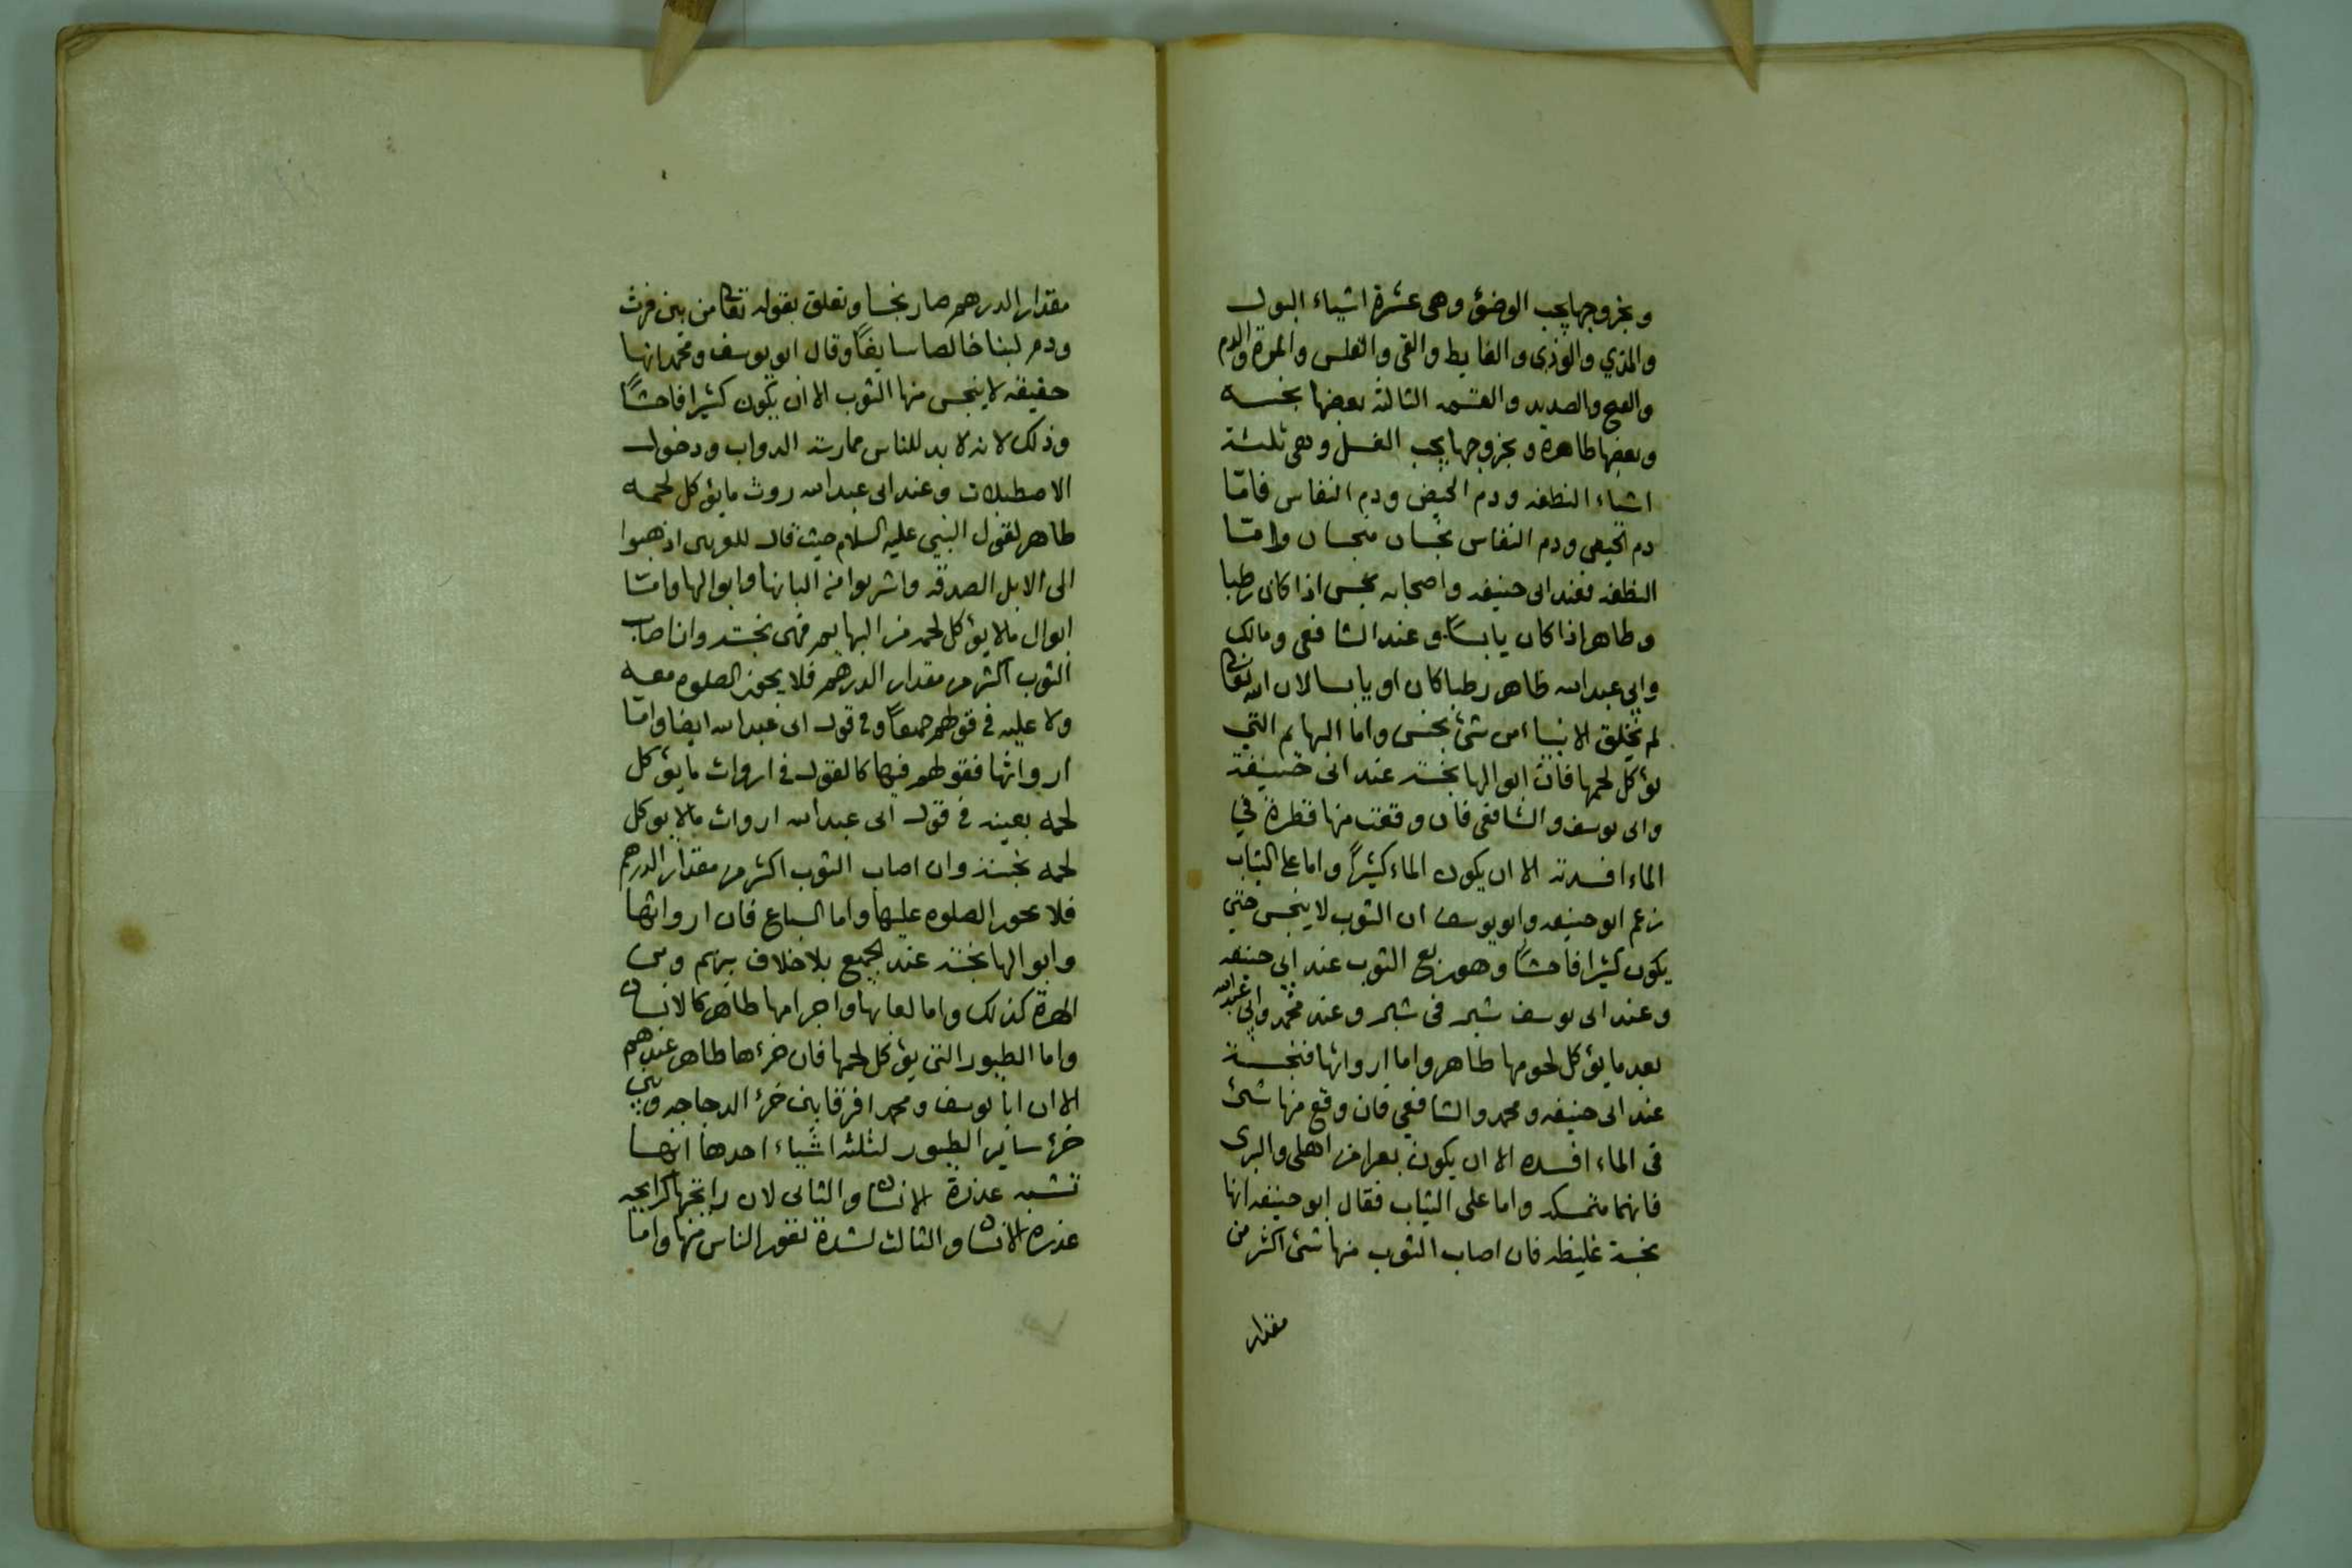 وبخروجها يجب الوضؤ وهى عشرة اشياء البول
والمذي والوذى والغايط والقى والقلس والمرة والدم
والقيح والصديد والقسمه الثالثة بعضها نجسه
وبعضها طاهرة وبخروجها يجب الغسل وهى ثلثة
اشياء النطفه ودم الحيض ودم النفاس فامّا
دم الحيض ودم النفاس نجسان منجسان وامّا
النطفه فعند ابى حنيفه واصحابه نجس اذا كان رطبا
وطاهر اذا كان يابسًا وعند الشافعى ومالك
وابي عبدالله طاهر رطبا كان او يابسا لان الله تعالى
لم يخلق الانبياء من شئ نجس واما البهائم التي
يؤكل لحمها فان ابوالها نجسة عند ابى حنيفة
وابى يوسف والشافعى فان وقعت منها قطرة في
الماء افسدته الا ان يكون الماء كثيرًا واما على الثياب
زعم ابو حنيفه وابو يوسف ان الثوب لا ينجس حتي
يكون كثيرا فاحشًا وهو ربع الثوب عند ابي حنيفه
وعند ابى يوسف شبر فى شبر وعند محمد وابي عبدالله
بعد ما يؤكل لحومها طاهر واما ارواثها فنجسة
عند ابى حنيفه ومحمد والشافعي فان وقع منها شئ
فى الماء افسده الا ان يكون بعرا من اهلى والبرى
فانهما متمسكه واما على الثياب فقال ابو حنيفه انها
نجسة غليظه فان اصاب الثوب منها شئ اكثر من
مقدار
مقدار الدرهم صار نجسا وتعلق بقوله تعالى من بين فرث
ودم لبنا خالصا سايغًا وقال ابو يوسف ومحمد انها
حفيفه لا ينجس منها الثوب الا ان يكون كثيرا فاحشًا
وذلك لانه لا بد للناس ممارسة الدواب ودخول
الاصطبلات وعند ابى عبدالله روث ما يؤكل لحمه
طاهر لقول النبي عليه السلام حيث قال للعربى اذهبوا
الى الابل الصدقه واشربوا من البانها وابوالها وامّا
ابوال ما لا يؤكل لحمه من البهايم فهى نجسة وان اصاب
الثوب اكثر من مقدار الدرهم فلا يجوز الصلوه معه
ولا عليه فى قولهم جميعًا وفى قول ابى عبدالله ايضا وامّا
ارواثها فقولهم فيها كالقول فى ارواث ما يؤكل
لحمه بعينه فى قول ابى عبدالله ارواث ما لا يوكل
لحمه نجسة وان اصاب الثوب اكثر من مقدار الدرهم
فلا يجوز الصلوه عليها واما السباع فان ارواثها
وابوالها نجسة عند الجميع بلا خلاف بينهم ومن
الهرة كذلك واما لعابها واجرامها طاهر كالانسان
واما الطيور التى يؤكل لحمها فان خرءها طاهر عندهم
الا ان ابا يوسف ومحمد افرقا بين خرء الدجاجه وبين
خرء ساير الطيور لثلثة اشياء احدها انها
تشبه عذرة الانسان والثانى لان رايحتها كرايحه
عذره الانسان والثالث لشدة نفور الناس منها واما